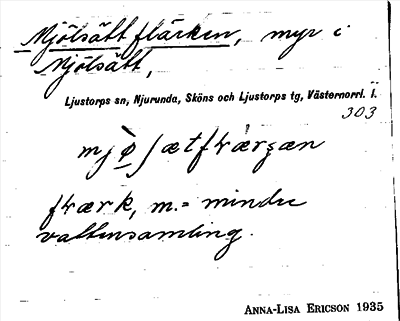 Mjölsätt flärken, myr i
Mjölsätt,
Ljustorps sn, Njurunda, Sköns och Ljustorps tg, Västernorrl. l.
303
fɫærk, m. = mindre
vattensamling.
ANNA-LISA ERICSON 1935